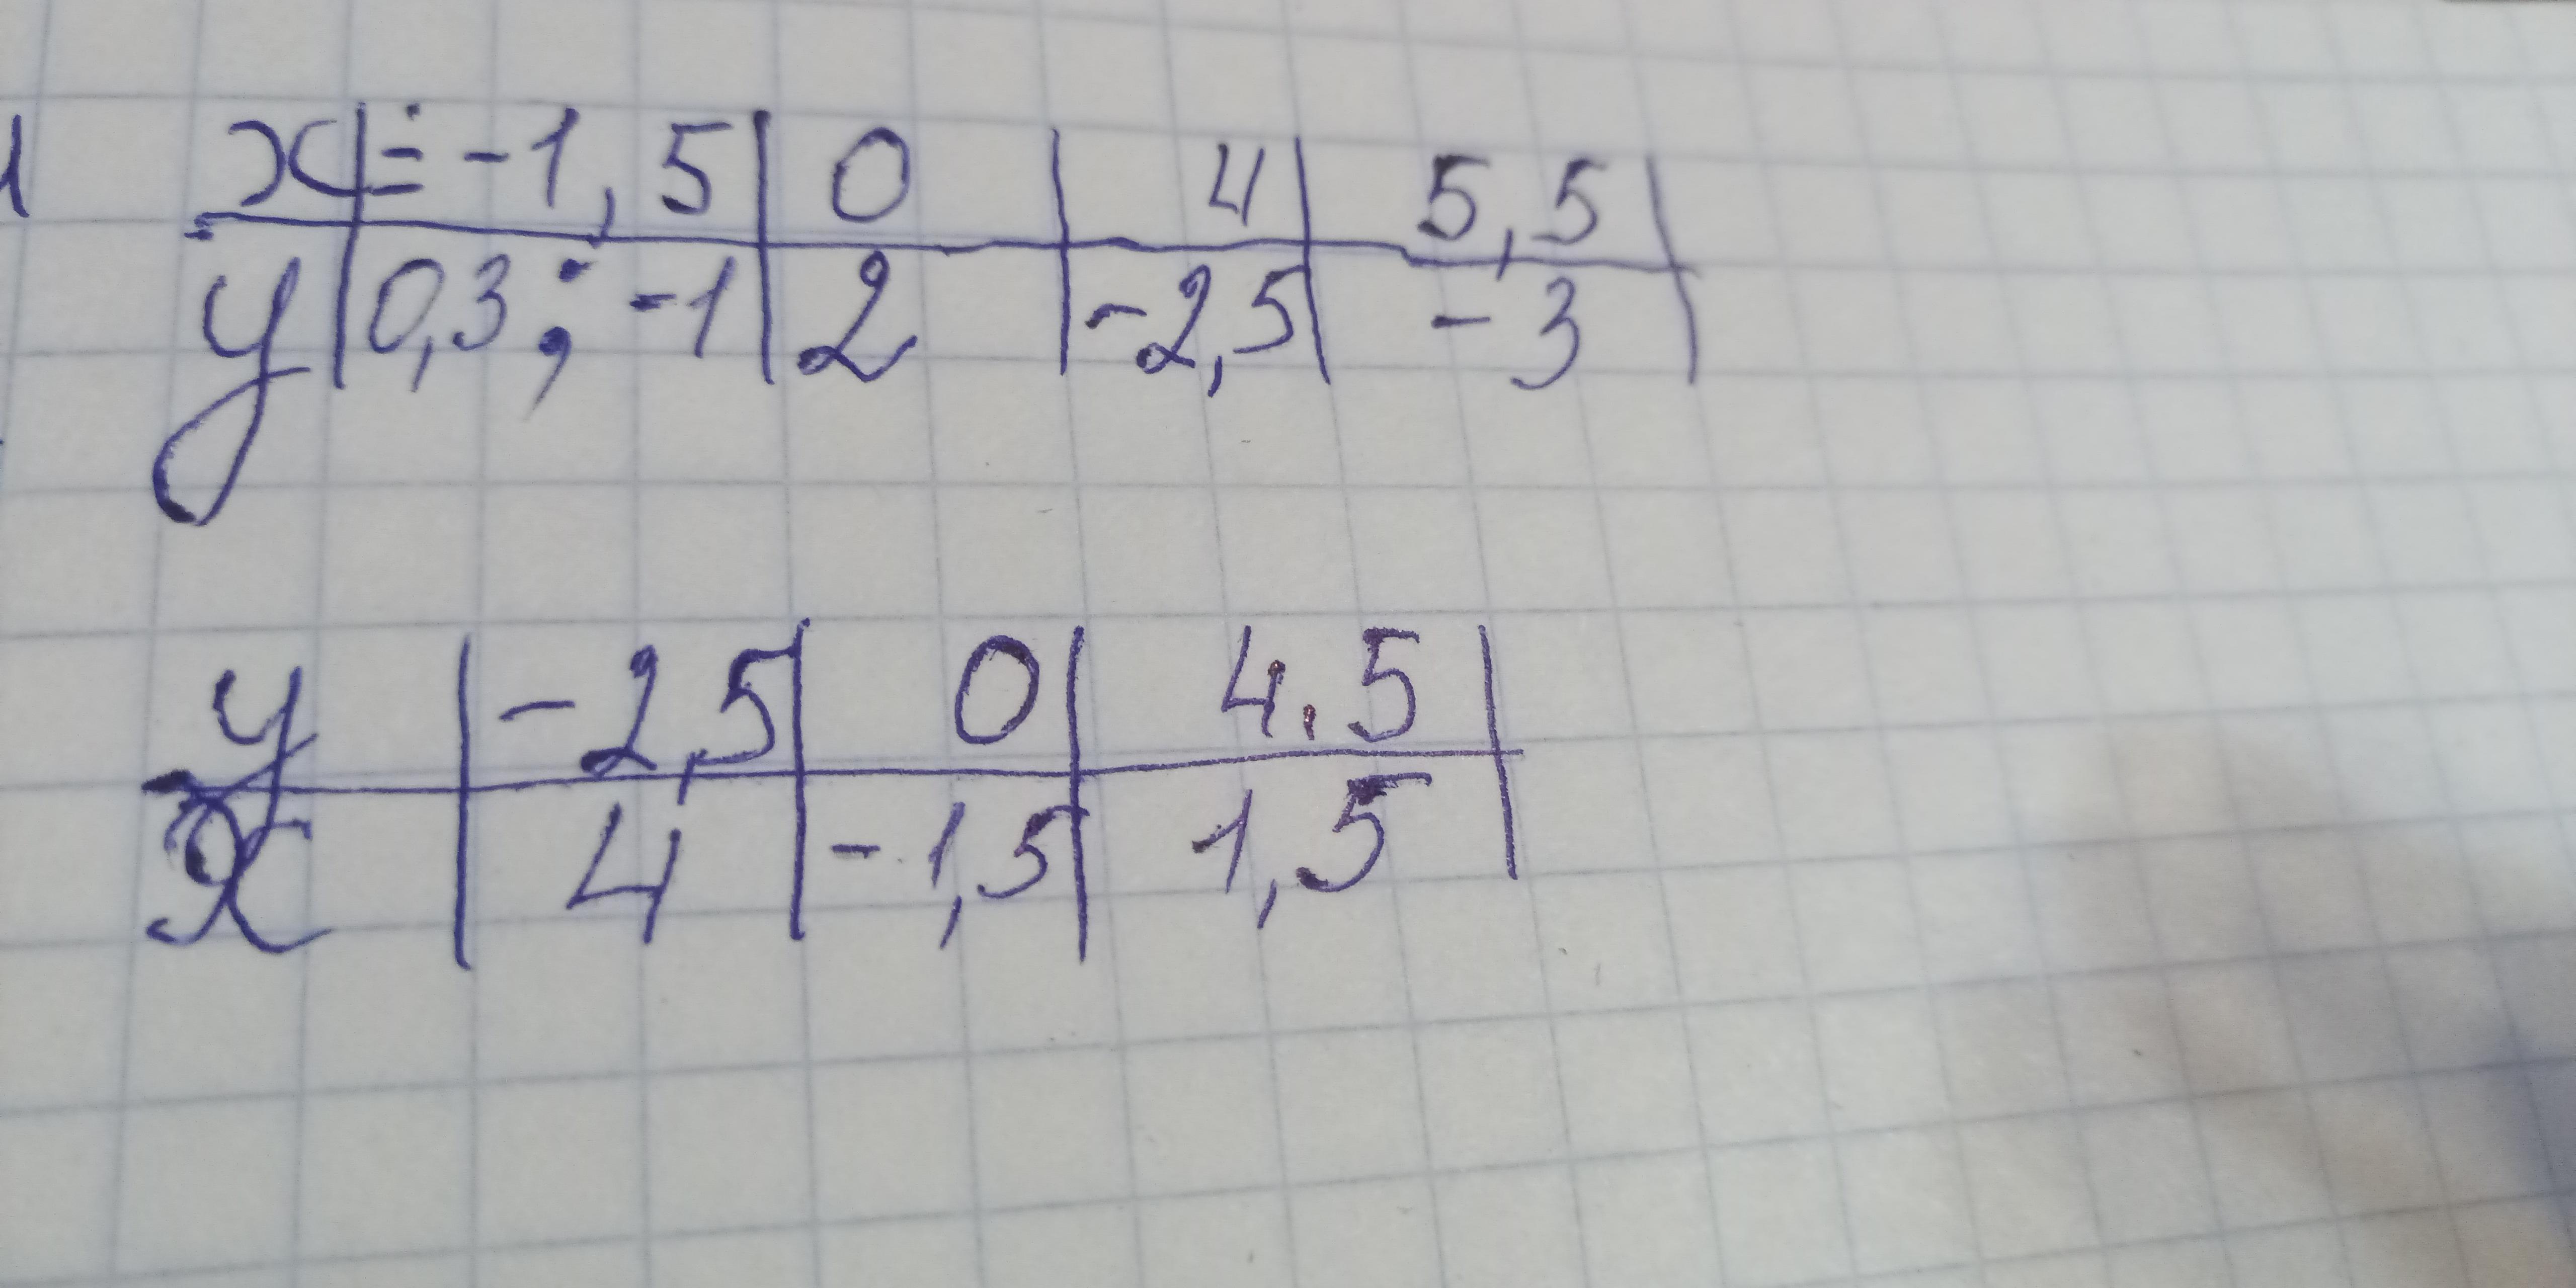 x = -1,5 0 4 5,5
y 0,3 ; -1 2 -2,5 -3
y -2,5 0 4.5
x 4 -1,5 1,5